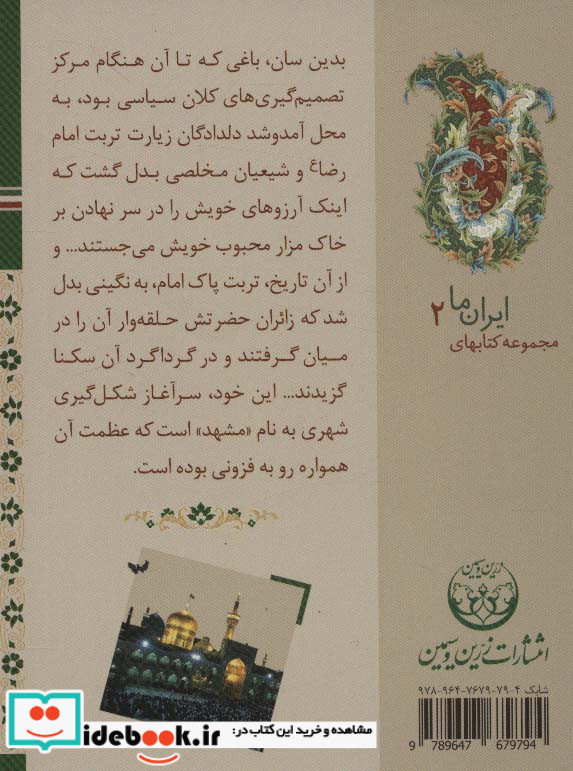 بدین سان، باغی که تا آن هنگام مرکز
تصمیم‌گیری‌های کلان سیاسی بود، به
محل آمدوشد دلدادگان زیارت تربت امام
رضاع و شیعیان مخلصی بدل گشت که
اینک آرزوهای خویش را در سر نهادن بر
خاک مزار محبوب خویش می‌جستند... و
از آن تاریخ، تربت پاک امام، به نگینی بدل
شد که زائران حضرتش حلقه‌وار آن را در
میان گرفتند و در گرداگرد آن سکنا
گزیدند... این خود، سرآغاز شکل‌گیری
شهری به نام «مشهد» است که عظمت آن
همواره رو به فزونی بوده است.
ایران ما ۲
مجموعه کتابهای
زرین و سیمین
انتشارات زرین و سیمین
شابک ۴-۷۹-۷۶۷۹-۹۶۴-۹۷۸
9 789647 679794
مشاهده و خرید این کتاب در:
idebook.ir